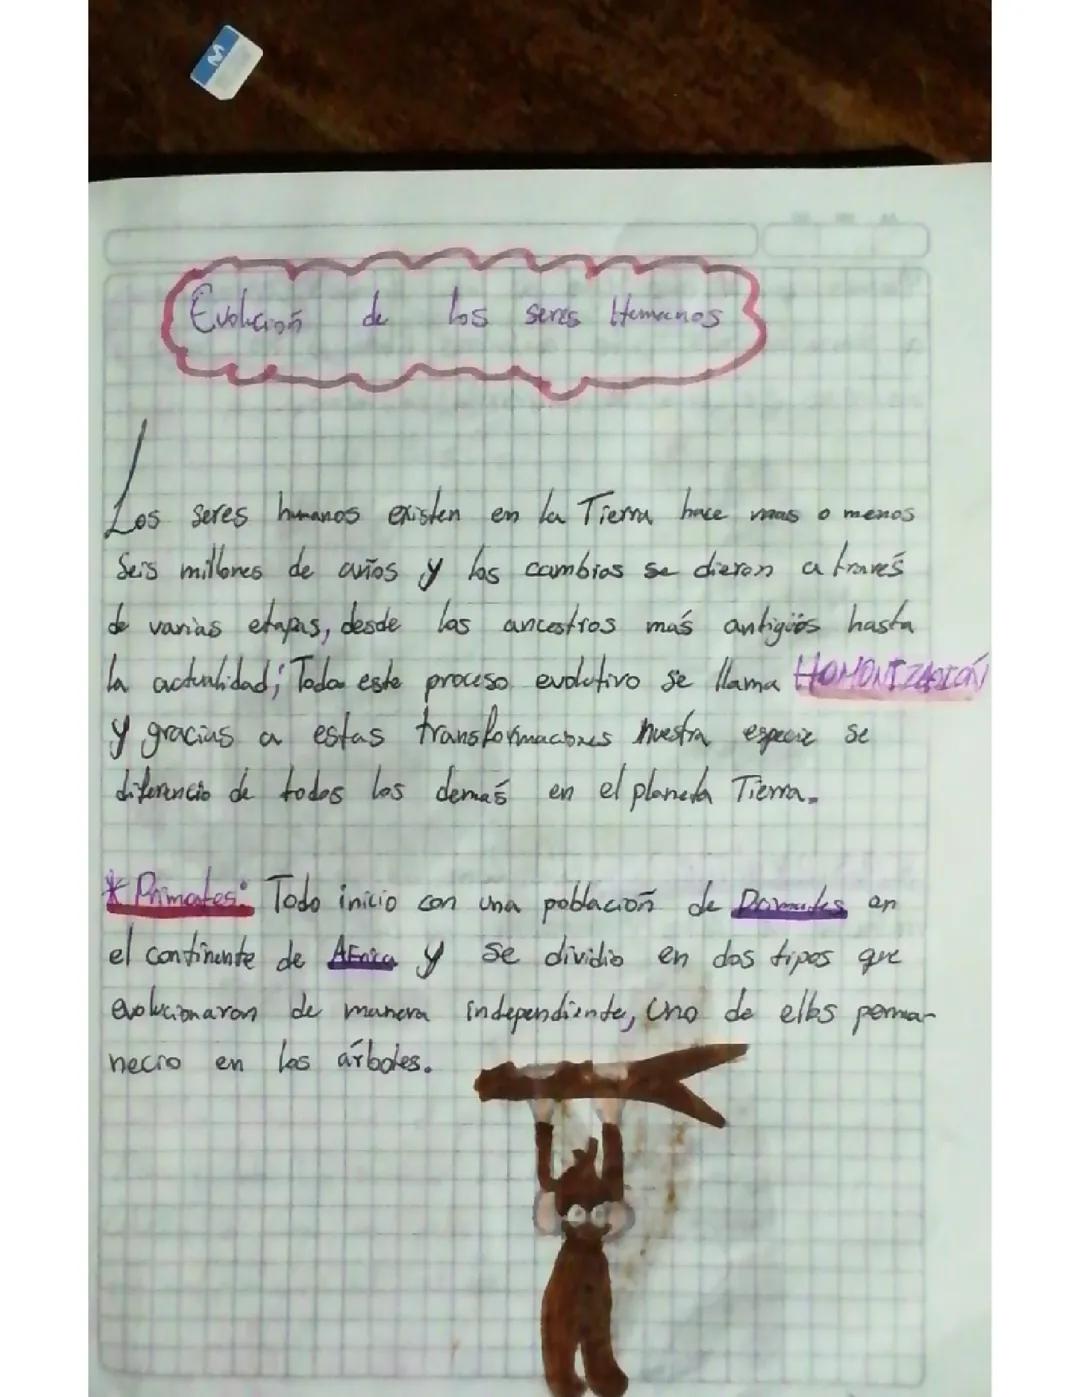 Evolución de los seres Humanos
Los seres humanos existen en la Tierra hace mas o menos
Seis millones de años y los cambios se dieron a través
de varias etapas, desde los ancestros más antigüos hasta
la actualidad; Todo este proceso evolutivo se llama HOMONIZACIÓN
y gracias a estas transformaciones nuestra especie se
diferencio de todos los demás en el planeta Tierra.
* Primates: Todo inicio con una población de Primates en
el continente de África y se dividio en dos tipos que
evolucionaron de manera independiente, Uno de ellos perma-
necio en los árboles.